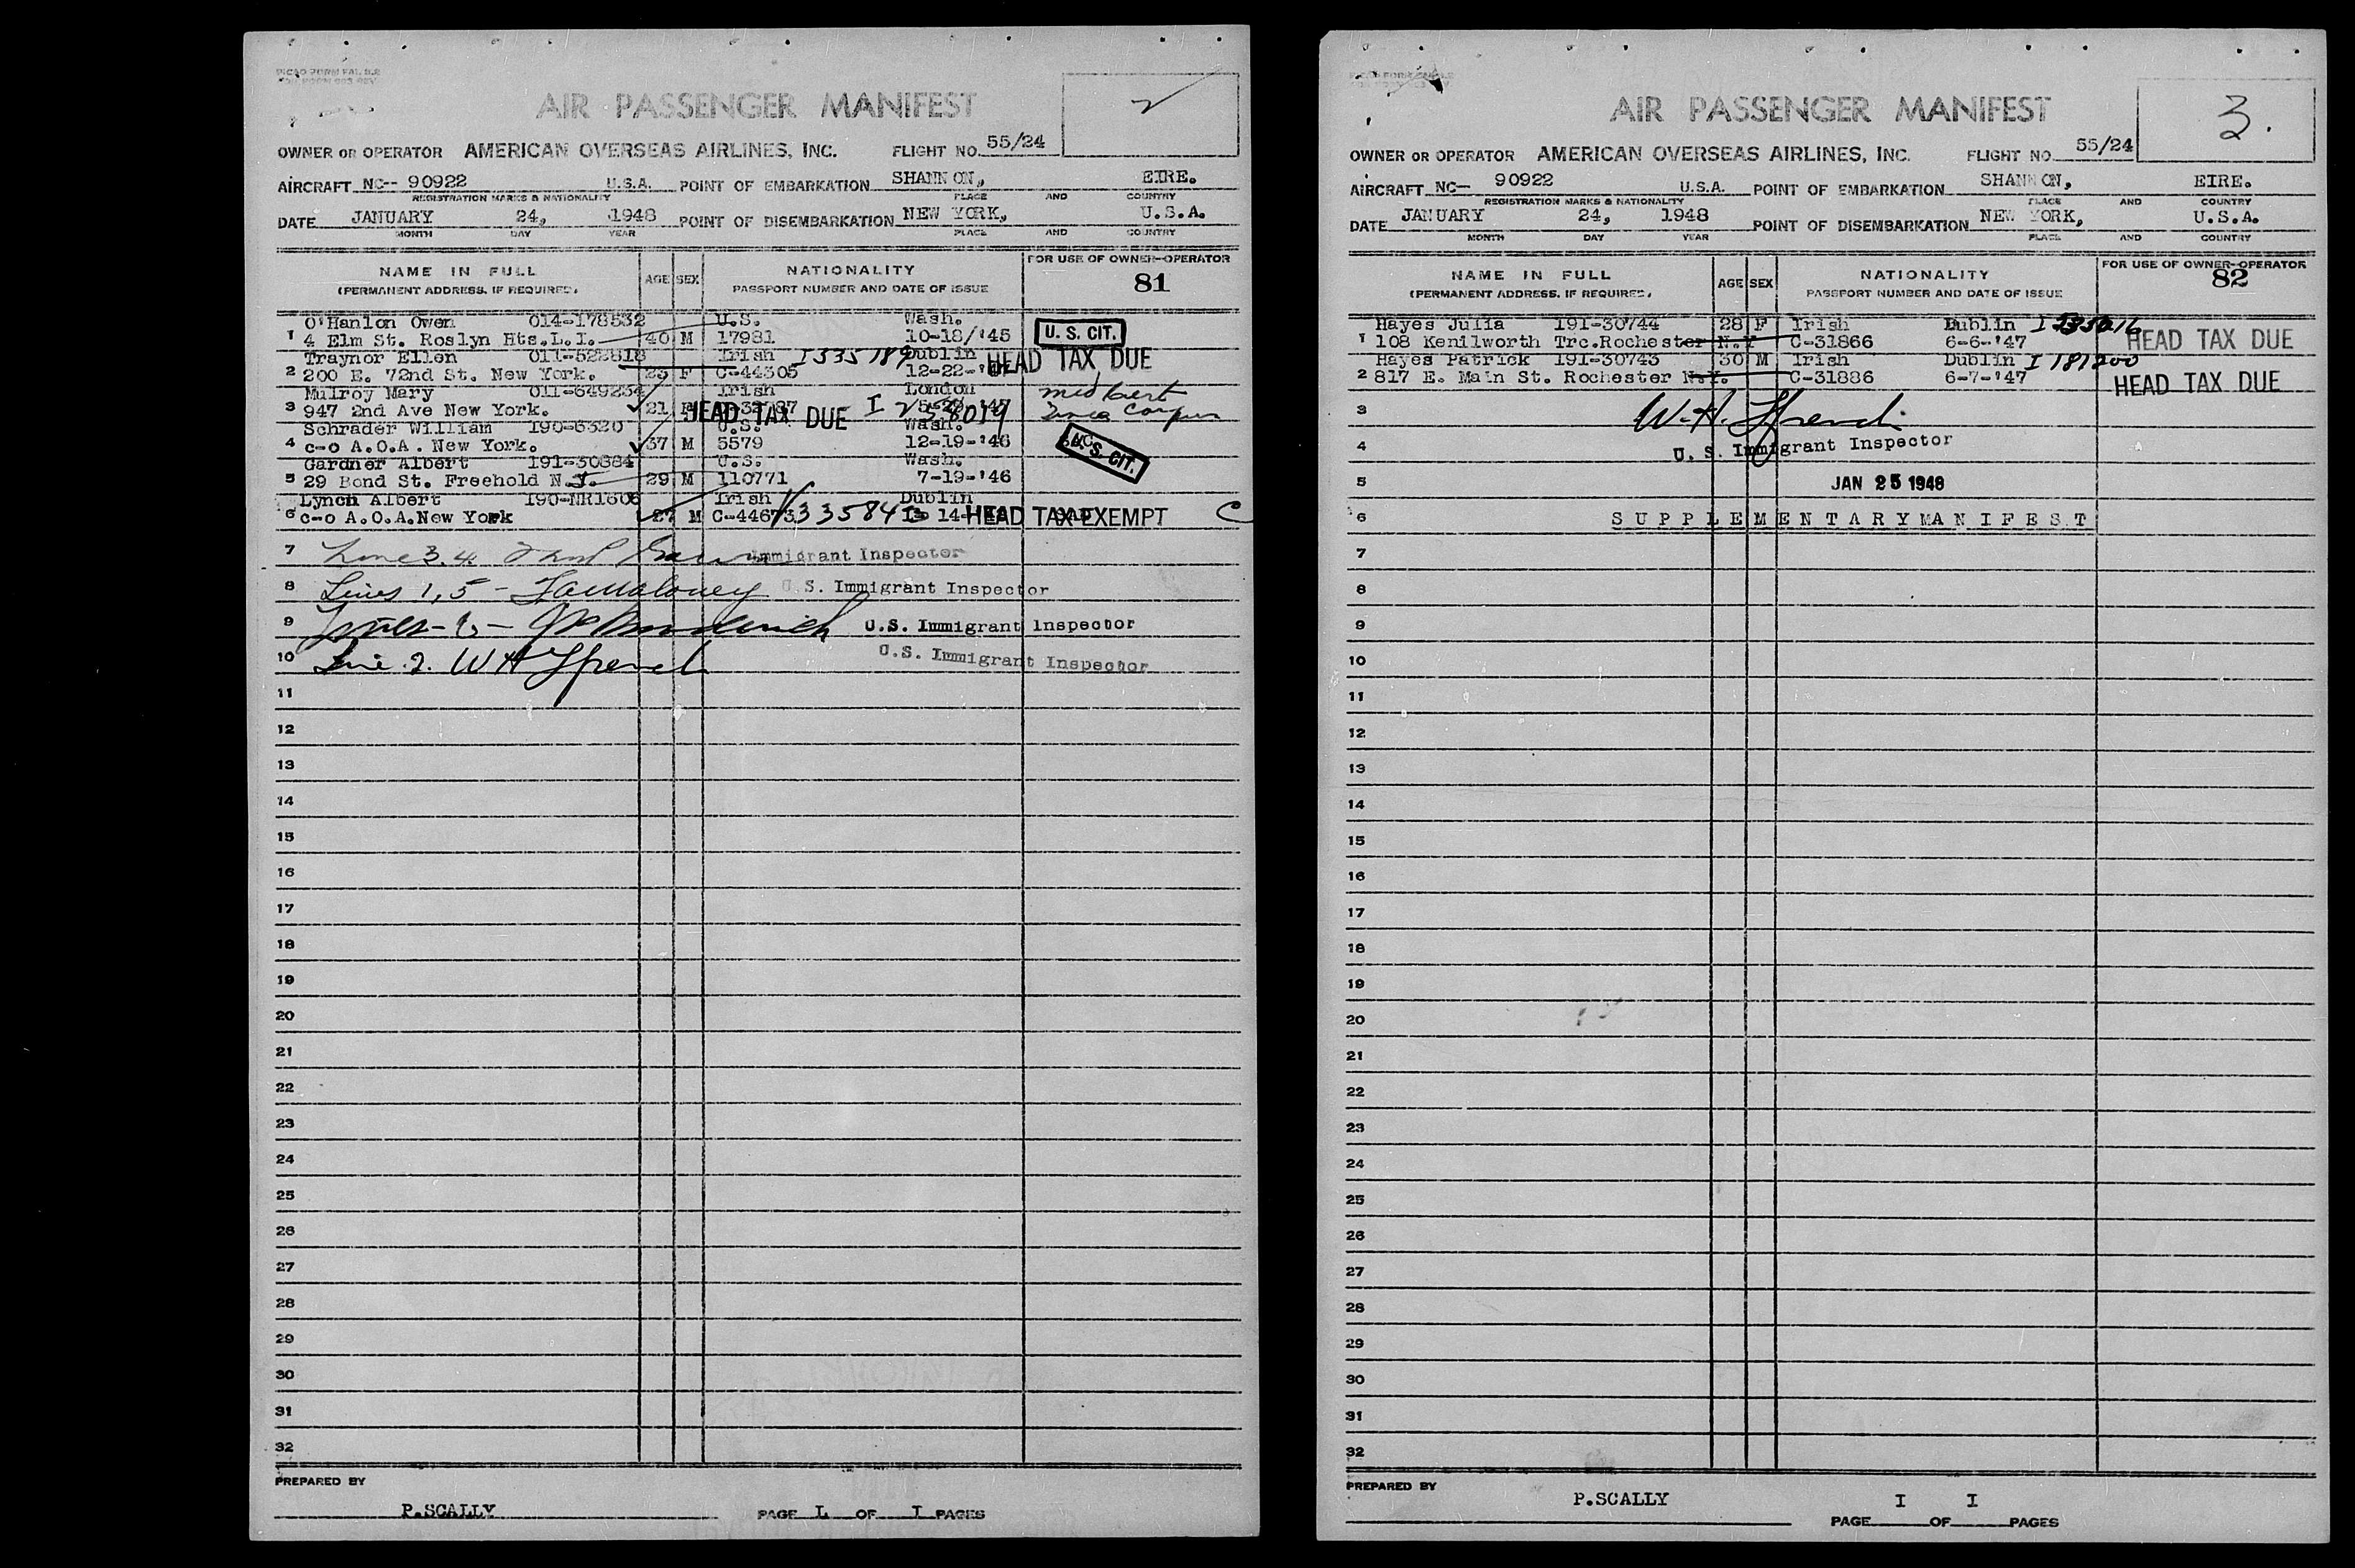 AIR PASSENGER MANIFEST
OWNER OR OPERATOR AMERICAN OVERSEAS AIRLINES, INC. FLIGHT NO. 55/24
AIRCRAFT NC-- 90922 U.S.A. POINT OF EMBARKATION SHANNON, EIRE.
REGISTRATION MARKS & NATIONALITY PLACE AND COUNTRY
DATE JANUARY 24, 1948 POINT OF DISEMBARKATION NEW YORK, U.S.A.
MONTH DAY YEAR PLACE AND COUNTRY
NAME IN FULL AGE SEX NATIONALITY FOR USE OF OWNER-OPERATOR
(PERMANENT ADDRESS, IF REQUIRED) PASSPORT NUMBER AND DATE OF ISSUE 81
O'Hanlon Owen 014-178532 U.S. Wash.
1 4 Elm St. Roslyn Hts.L.I. 40 M 17981 10-18/'45 U. S. CIT.
Traynor Ellen Irish I335189 Dublin HEAD TAX DUE
2 200 E. 72nd St. New York. 23 F C-44305 12-22-
Mulroy Mary 011-649234 Irish London
3 947 2nd Ave New York. 21 HEAD TAX DUE I 258019
Schrader William 190-6320 U.S. Wash.
4 c-o A.O.A. New York. 37 M 5579 12-19-'46 U.S. CIT.
Gardner Albert 191-30884 U.S. Wash.
5 29 Bond St. Freehold N.J. 29 M 110771 7-19-'46
Lynch Albert 190-NR1606 Irish Dublin
6 c-o A.O.A.New York 27 M C-44673 HEAD TAX EXEMPT
7 Line 3.4. Immigrant Inspector
8 Lines 1,5 - U.S. Immigrant Inspector
9 U.S. Immigrant Inspector
10 Line 2. W H U.S. Immigrant Inspector
11
12
13
14
15
16
17
18
19
20
21
22
23
24
25
26
27
28
29
30
31
32
PREPARED BY
P.SCALLY PAGE I OF I PAGES
AIR PASSENGER MANIFEST 3.
OWNER OR OPERATOR AMERICAN OVERSEAS AIRLINES, INC. FLIGHT NO. 55/24
AIRCRAFT NC- 90922 U.S.A. POINT OF EMBARKATION SHANNON, EIRE.
REGISTRATION MARKS & NATIONALITY PLACE AND COUNTRY
DATE JANUARY 24, 1948 POINT OF DISEMBARKATION NEW YORK, U.S.A.
MONTH DAY YEAR PLACE AND COUNTRY
NAME IN FULL AGE SEX NATIONALITY FOR USE OF OWNER-OPERATOR
(PERMANENT ADDRESS, IF REQUIRED) PASSPORT NUMBER AND DATE OF ISSUE 82
Hayes Julia 191-30744 28 F Irish Dublin
1 108 Kenilworth Trc.Rochester N.Y C-31866 6-6-'47 HEAD TAX DUE
Hayes Patrick 191-30743 30 M Irish Dublin I 181200
2 817 E. Main St. Rochester N.Y. C-31886 6-7-'47 HEAD TAX DUE
3 W.H.
4 U. S. Immigrant Inspector
5 JAN 25 1948
6 SUPPLEMENTARY MANIFEST
7
8
9
10
11
12
13
14
15
16
17
18
19
20
21
22
23
24
25
26
27
28
29
30
31
32
PREPARED BY
P.SCALLY I I
PAGE OF PAGES